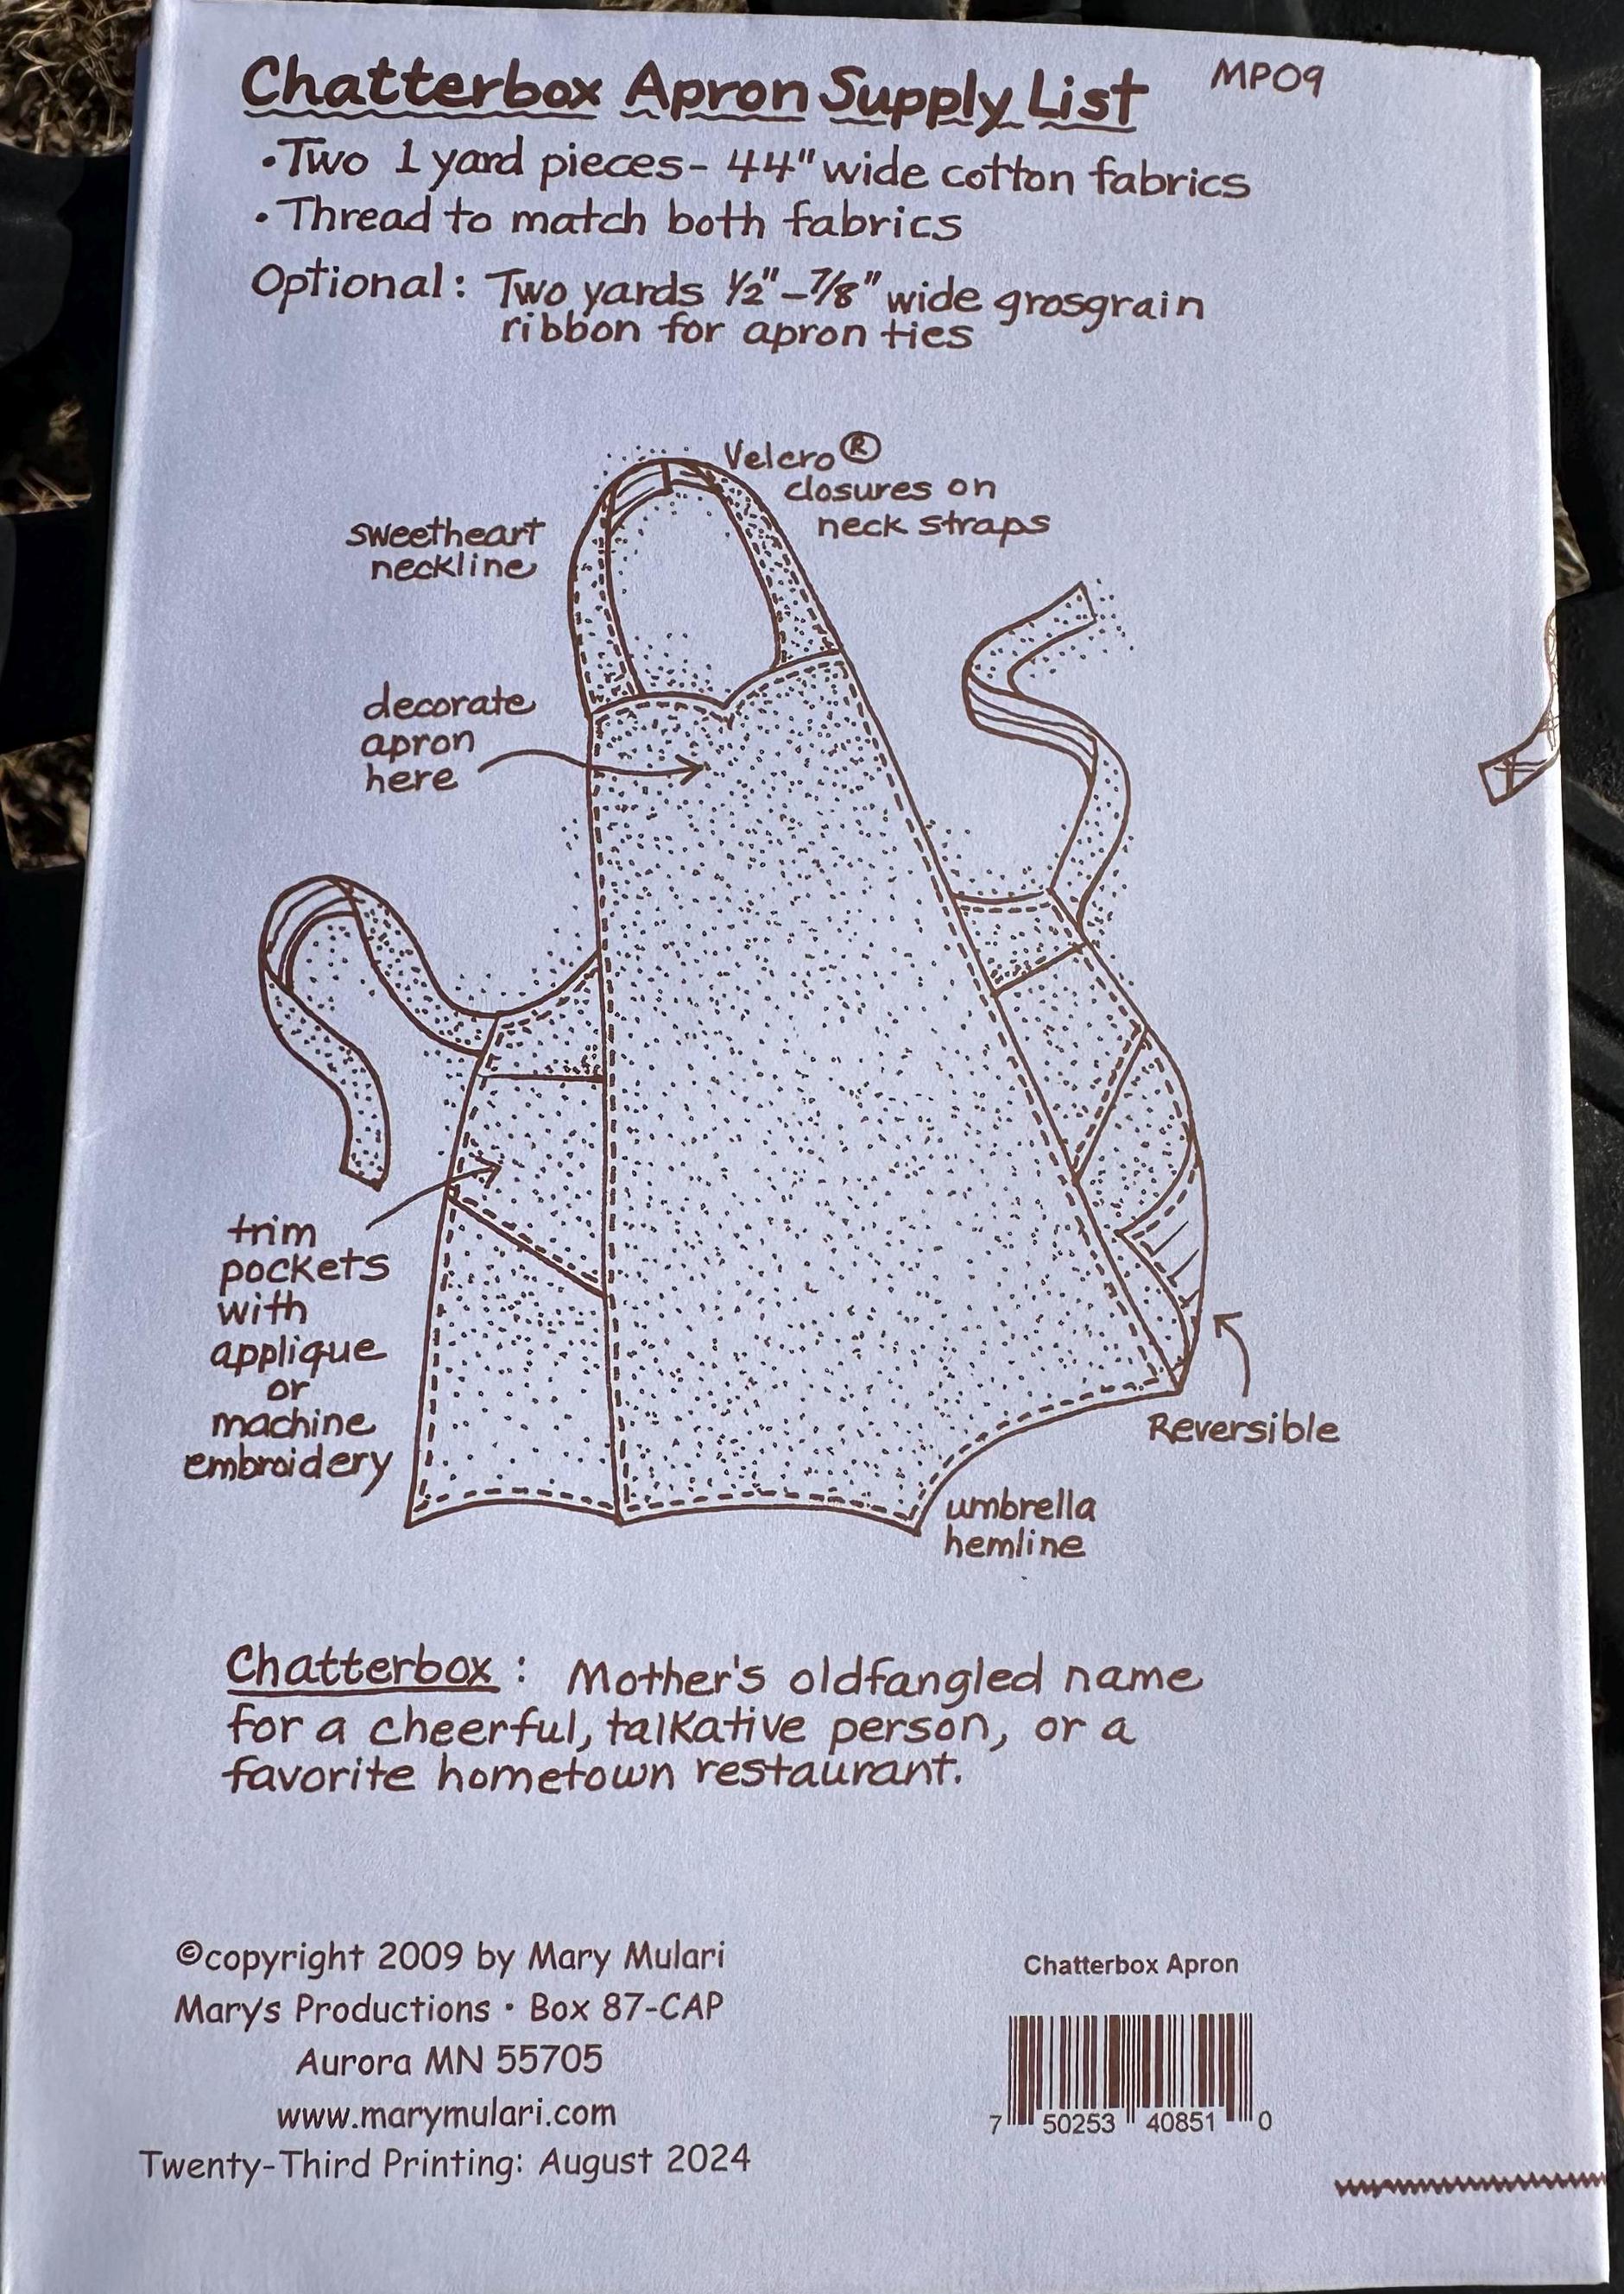 Chatterbox Apron Supply List MP09
•Two 1 yard pieces- 44" wide cotton fabrics
•Thread to match both fabrics
Optional: Two yards ½"-⅞" wide grosgrain
ribbon for apron ties
Velcro®
closures on
neck straps
sweetheart
neckline
decorate
apron
here
trim
pockets
with
applique
or
machine
embroidery
Reversible
umbrella
hemline
Chatterbox: Mother's oldfangled name
for a cheerful, talkative person, or a
favorite hometown restaurant.
©copyright 2009 by Mary Mulari
Mary's Productions • Box 87-CAP
Aurora MN 55705
www.marymulari.com
Twenty-Third Printing: August 2024
Chatterbox Apron
7 50253 40851 0